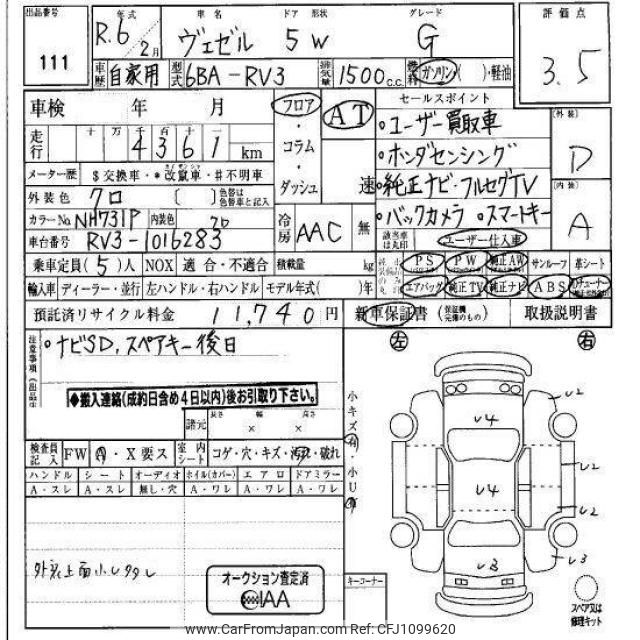 出品番号 111
年式 R.6 / 2月
車名 ヴェゼル
ドア 形状 5 W
グレード G
評価点 3.5
車歴 自家用 型式 6BA-RV3 排気量 1500c.c. 燃料 ガソリン( )・軽油
車検 年 月
フロア・コラム・ダッシュ
AT 速
セールスポイント
。ユーザー買取車
。ホンダセンシング
。純正ナビ・フルセグTV
。バックカメラ 。スマートキー
外装 D
内装 A
走行 十 万 千 百 十 一
4 3 6 1 km
メーター歴 $交換車・*改竄車・#不明車
外装色 クロ 〔 〕 色替は色替車と記入
カラーNo. NH731P 内装色 クロ
冷房 AAC 無
車台番号 RV3-1016283
該当車は丸印 ユーザー仕入車
乗車定員(5)人 NOX 適合・不適合 積載量 kg
PS PW 純正AW サンルーフ 革シート
エアバッグ 純正TV 純正ナビ ABS
輸入車 ディーラー・並行 左ハンドル・右ハンドル モデル年式( )年
預託済リサイクル料金 11,740円
新車保証書(保証継完備のもの) 取扱説明書
注意事項
。ナビSD,スペアキー後日
◆搬入連絡(成約日含め4日以内)後お引取り下さい。
諸元 長さ 幅 高さ
× ×
左 右
小キズ
小U
検査員記入 FW A・X要ス 室内シート コゲ・穴・キズ・汚れ・破れ
ハンドル シート オーディオ ホイル(カバー) エアロ ドアミラー
A・スレ A・スレ 無し・穴 A・ワレ A・ワレ A・ワレ
外装上面小U
オークション査定済
CIAA
キーコーナー
U2
U4
U2
U4
U2
U3
U3
スペア又は
修理キット
www.CarFromJapan.com Ref: CFJ1099620